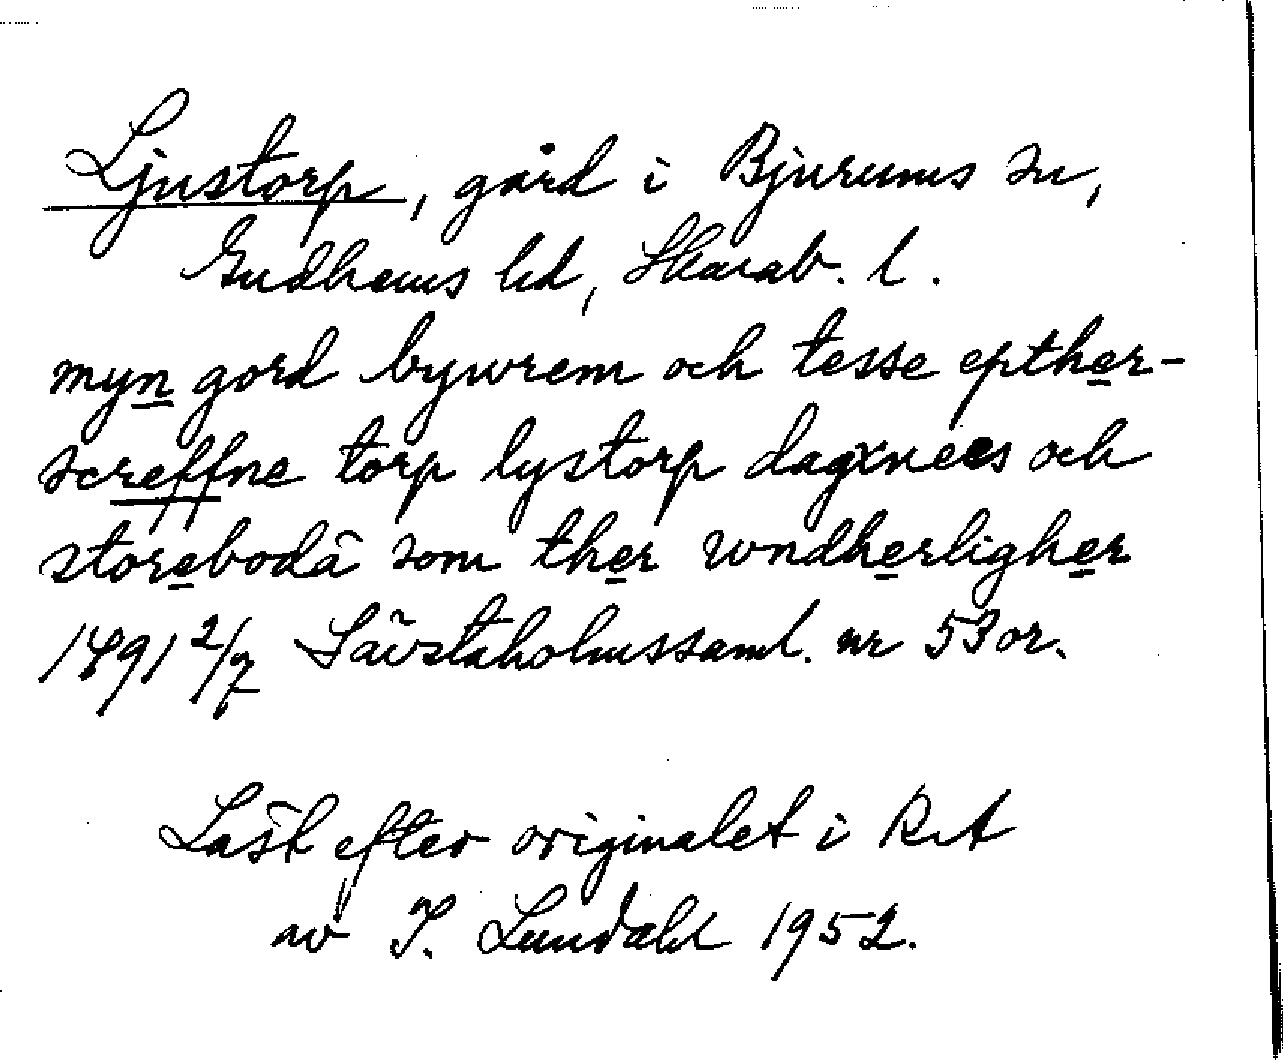 Ljustorp, gård i Bjurums sn,
Gudhems hd, Skarab. l.
myn gord bywrem och tesse epther-
screffne torp lystorp dagxnees och
storebodā som ther wndherligher
1491 2/7 Sävstaholmssaml. nr 53 or.
Läst efter originalet i RA
av I. Lundahl 1952.